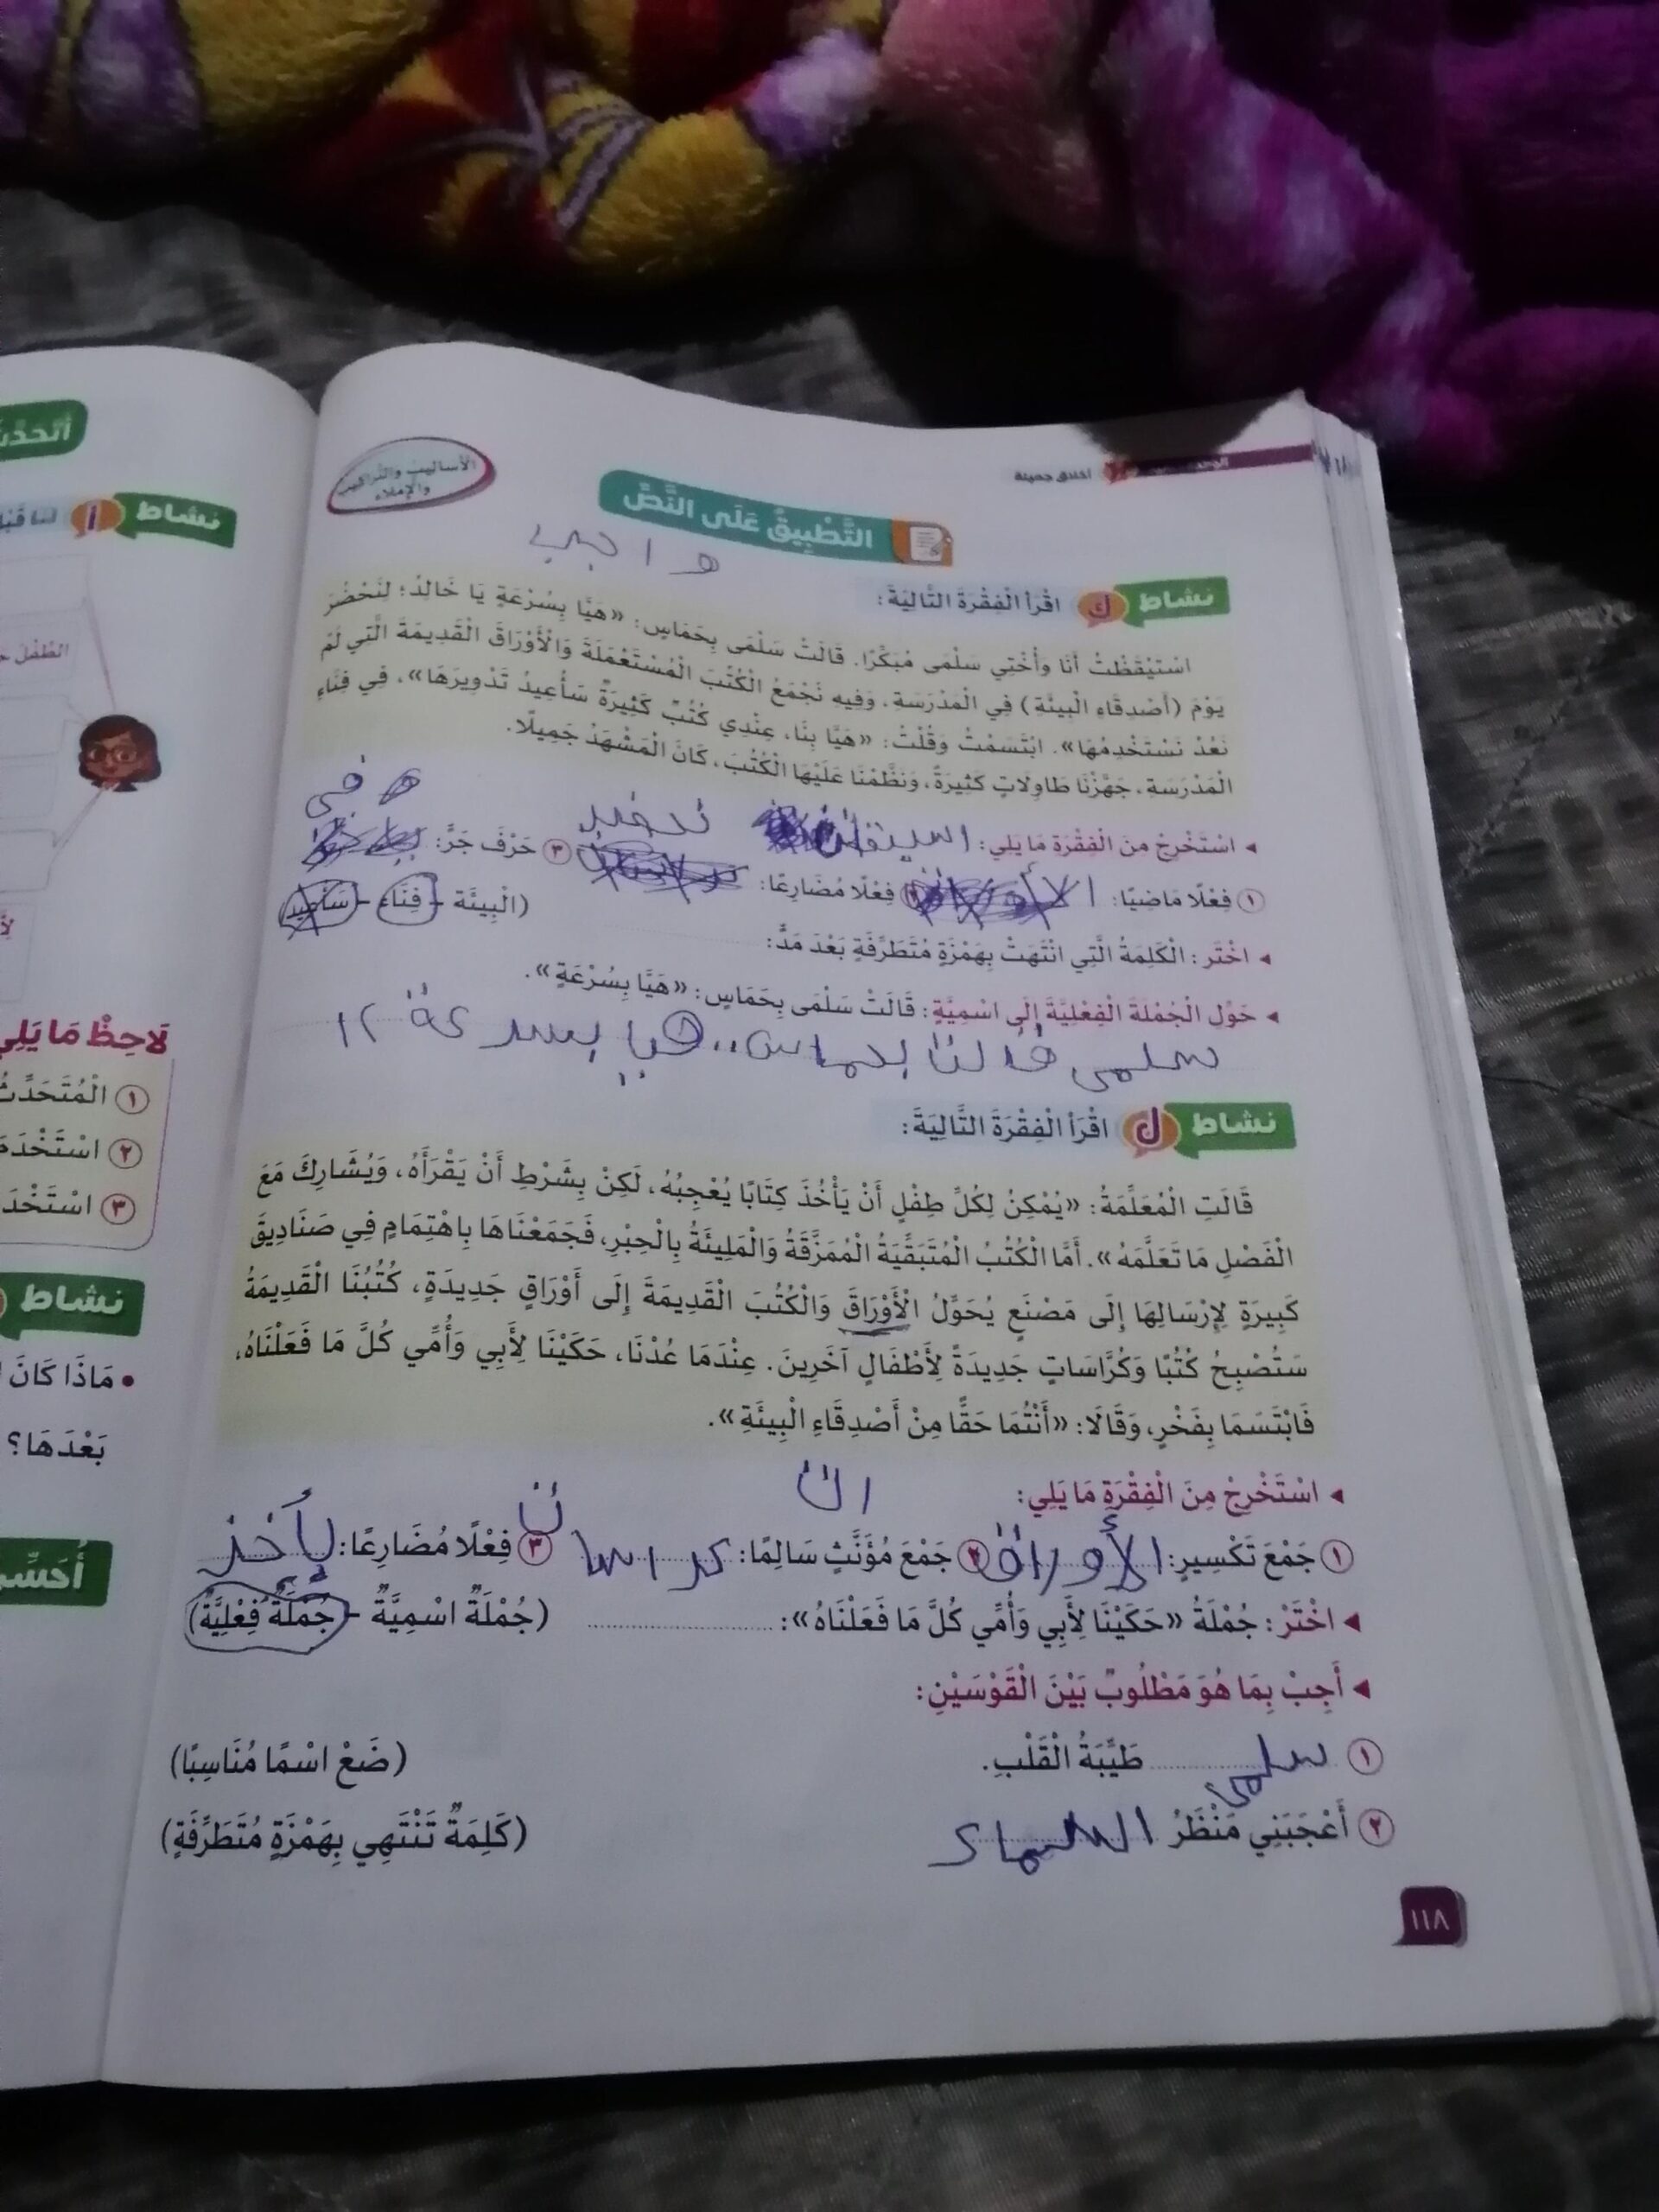 أخلاق جميلة
الأساليب والتراكيب
والإملاء
التَّطْبِيقُ عَلَى النَّصِّ
نشاط ك اقْرَأِ الْفِقْرَةَ التَّالِيَةَ:
اسْتَيْقَظْتُ أَنَا وَأُخْتِي سَلْمَى مُبَكِّرًا. قَالَتْ سَلْمَى بِحَمَاسٍ: «هَيَّا بِسُرْعَةٍ يَا خَالِدُ؛ لِنَحْضُرَ
يَوْمَ (أَصْدِقَاءِ الْبِيئَةِ) فِي الْمَدْرَسَةِ، وَفِيهِ نَجْمَعُ الْكُتُبَ الْمُسْتَعْمَلَةَ وَالْأَوْرَاقَ الْقَدِيمَةَ الَّتِي لَمْ
نَعُدْ نَسْتَخْدِمُهَا». ابْتَسَمْتُ وَقُلْتُ: «هَيَّا بِنَا، عِنْدِي كُتُبٌ كَثِيرَةٌ سَأُعِيدُ تَدْوِيرَهَا»، فِي فِنَاءِ
الْمَدْرَسَةِ، جَهَّزْنَا طَاوِلَاتٍ كَثِيرَةً، وَنَظَّمْنَا عَلَيْهَا الْكُتُبَ، كَانَ الْمَشْهَدُ جَمِيلًا.
اسْتَخْرِجْ مِنَ الْفِقْرَةِ مَا يَلِي:
١ فِعْلًا مَاضِيًا: ٢ فِعْلًا مُضَارِعًا: ٣ حَرْفَ جَرٍّ: فى
اخْتَرْ: الْكَلِمَةُ الَّتِي انْتَهَتْ بِهَمْزَةٍ مُتَطَرِّفَةٍ بَعْدَ مَدٍّ: (الْبِيئَة - فِنَاء - سَأُعِيد)
حَوِّلِ الْجُمْلَةَ الْفِعْلِيَّةَ إِلَى اسْمِيَّةٍ: قَالَتْ سَلْمَى بِحَمَاسٍ: «هَيَّا بِسُرْعَةٍ».
سلمى قالت بحماس.. هيا بسرعة
نشاط ل اقْرَأِ الْفِقْرَةَ التَّالِيَةَ:
قَالَتِ الْمُعَلِّمَةُ: «يُمْكِنُ لِكُلِّ طِفْلٍ أَنْ يَأْخُذَ كِتَابًا يُعْجِبُهُ، لَكِنْ بِشَرْطِ أَنْ يَقْرَأَهُ، وَيُشَارِكَ مَعَ
الْفَصْلِ مَا تَعَلَّمَهُ». أَمَّا الْكُتُبُ الْمُتَبَقِّيَةُ الْمُمَزَّقَةُ وَالْمَلِيئَةُ بِالْحِبْرِ، فَجَمَعْنَاهَا بِاهْتِمَامٍ فِي صَنَادِيقَ
كَبِيرَةٍ لِإِرْسَالِهَا إِلَى مَصْنَعٍ يُحَوِّلُ الْأَوْرَاقَ وَالْكُتُبَ الْقَدِيمَةَ إِلَى أَوْرَاقٍ جَدِيدَةٍ، كُتُبُنَا الْقَدِيمَةُ
سَتُصْبِحُ كُتُبًا وَكُرَّاسَاتٍ جَدِيدَةً لِأَطْفَالٍ آخَرِينَ. عِنْدَمَا عُدْنَا، حَكَيْنَا لِأَبِي وَأُمِّي كُلَّ مَا فَعَلْنَاهُ،
فَابْتَسَمَا بِفَخْرٍ، وَقَالَا: «أَنْتُمَا حَقًّا مِنْ أَصْدِقَاءِ الْبِيئَةِ».
اسْتَخْرِجْ مِنَ الْفِقْرَةِ مَا يَلِي:
ات
١ جَمْعَ تَكْسِيرٍ: الأوراق ٢ جَمْعَ مُؤَنَّثٍ سَالِمًا: كراسات ٣ فِعْلًا مُضَارِعًا: يأخذ
اخْتَرْ: جُمْلَةُ «حَكَيْنَا لِأَبِي وَأُمِّي كُلَّ مَا فَعَلْنَاهُ»: (جُمْلَةٌ اسْمِيَّةٌ - جُمْلَةٌ فِعْلِيَّةٌ)
أَجِبْ بِمَا هُوَ مَطْلُوبٌ بَيْنَ الْقَوْسَيْنِ:
١ سلمى طَيِّبَةُ الْقَلْبِ. (ضَعْ اسْمًا مُنَاسِبًا)
٢ أَعْجَبَنِي مَنْظَرُ السماء (كَلِمَةٌ تَنْتَهِي بِهَمْزَةٍ مُتَطَرِّفَةٍ)
١١٨
نشاط أ
الطِّفْل
لَاحِظْ مَا يَلِي
١
٢
٣
نشاط
مَاذَا كَانَ
بَعْدَهَا؟